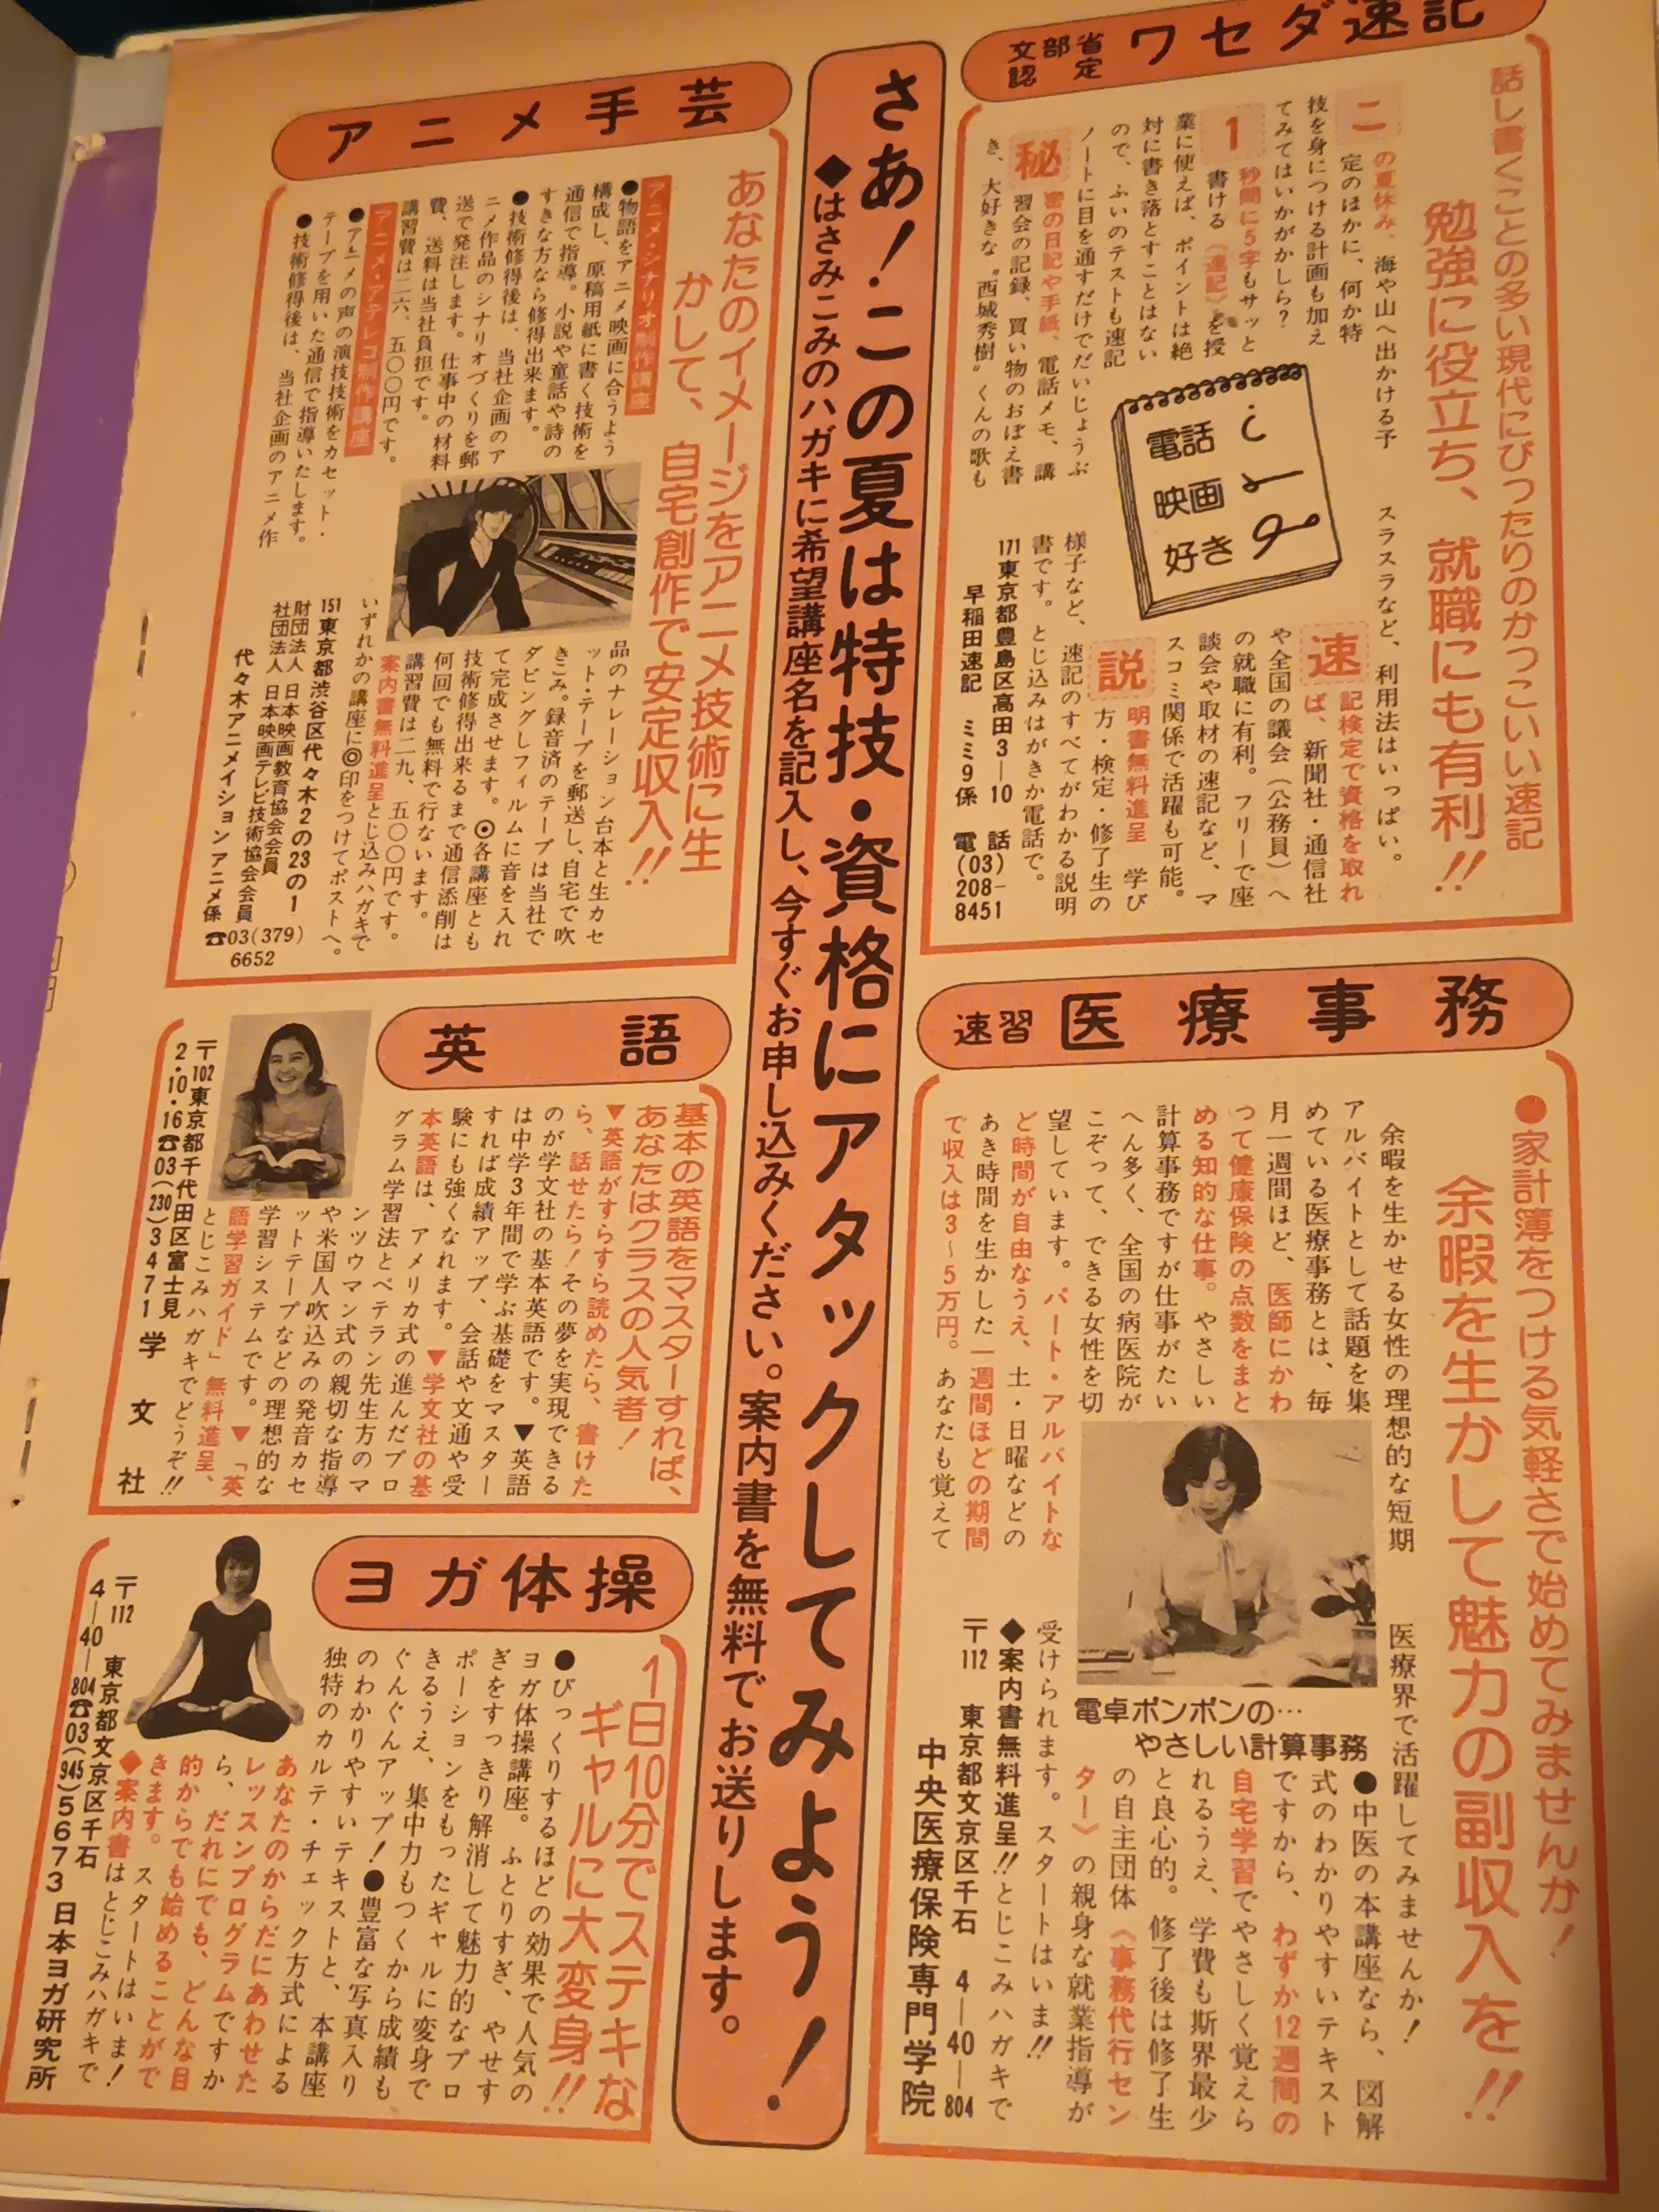 文部省
認定
ワセダ速記
話し書くことの多い現代にぴったりのかっこいい速記
勉強に役立ち、就職にも有利!!
この夏休み、海や山へ出かける予
定のほかに、何か特
技を身につける計画も加え
てみてはいかがかしら?
1秒間に5字もサッと
書ける《速記》を授
業に使えば、ポイントは絶
対に書き落とすことはない
ので、ふいのテストも速記
ノートに目を通すだけでだいじょうぶ
秘密の日記や手紙、電話メモ、講
習会の記録、買い物のおぼえ書
き、大好きな〝西城秀樹〟くんの歌も
スラスラなど、利用法はいっぱい。
電話
映画
好き
速記検定で資格を取れ
ば、新聞社・通信社
や全国の議会(公務員)へ
の就職に有利。フリーで座
談会や取材の速記など、マ
スコミ関係で活躍も可能。
説明書無料進呈 学び
方・検定・修了生の
様子など、速記のすべてがわかる説明
書です。とじ込みはがきか電話で。
171東京都豊島区高田3―10
早稲田速記 ミミ9係
電話
(03)
208-
8451
さあ!この夏は特技・資格にアタックしてみよう!
◆はさみこみのハガキに希望講座名を記入し、今すぐお申し込みください。案内書を無料でお送りします。
アニメ手芸
あなたのイメージをアニメ技術に生
かして、自宅創作で安定収入!!
アニメ・シナリオ制作講座
●物語をアニメ映画に合うよう
構成し、原稿用紙に書く技術を
通信で指導。小説や童話や詩の
すきな方なら修得出来ます。
●技術修得後は、当社企画のア
ニメ作品のシナリオづくりを郵
送で発注します。仕事中の材料
費、送料は当社負担です。
講習費は二六、五〇〇円です。
アニメ・アテレコ制作講座
●アニメの声の演技技術をカセット・
テープを用いた通信で指導いたします。
●技術修得後は、当社企画のアニメ作
品のナレーション台本と生カセ
ット・テープを郵送し、自宅で吹
きこみ。録音済のテープは当社で
ダビングしフィルムに音を入れ
て完成させます。◎各講座とも
技術修得出来るまで通信添削は
何回でも無料で行ないます。
講習費は二九、五〇〇円です。
案内書無料進呈とじ込みハガキで
いずれかの講座に◎印をつけてポストへ。
151東京都渋谷区代々木2の23の1
財団法人 日本映画教育協会会員
社団法人 日本映画テレビ技術協会会員
代々木アニメイション アニメ係
☎03(379)
6652
速習 医療事務
●家計簿をつける気軽さで始めてみませんか!
余暇を生かして魅力の副収入を!!
余暇を生かせる女性の理想的な短期
アルバイトとして話題を集
めている医療事務とは、毎
月一週間ほど、医師にかわ
って健康保険の点数をまと
める知的な仕事。やさしい
計算事務ですが仕事がたい
へん多く、全国の病医院が
こぞって、できる女性を切
望しています。パート・アルバイトな
ど時間が自由なうえ、土・日曜などの
あき時間を生かした一週間ほどの期間
で収入は3~5万円。あなたも覚えて
医療界で活躍してみませんか!
電卓ポンポンの…
やさしい計算事務
●中医の本講座なら、図解
式のわかりやすいテキスト
ですから、わずか12週間の
自宅学習でやさしく覚えら
れるうえ、学費も斯界最少
と良心的。修了後は修了生
の自主団体《事務代行セン
ター》の親身な就業指導が
受けられます。スタートはいま!!
◆案内書無料進呈!!とじこみハガキで
〒112 東京都文京区千石 4―40―804
中央医療保険専門学院
英語
基本の英語をマスターすれば、
あなたはクラスの人気者!
▼英語がすらすら読めたら、書けた
ら、話せたら!その夢を実現できる
のが学文社の基本英語です。▼英語
は中学3年間で学ぶ基礎をマスター
すれば成績アップ、会話や文通や受
験にも強くなれます。▼学文社の基
本英語は、アメリカ式の進んだプロ
グラム学習法とベテラン先生方のマ
ンツウマン式の親切な指導
や米国人吹込みの発音カセ
ットテープなどの理想的な
学習システムです。▼「英
語学習ガイド」無料進呈、
とじこみハガキでどうぞ!!
〒102東京都千代田区富士見
2・10・16☎03(230)3471
学文社
ヨガ体操
1日10分でステキな
ギャルに大変身!!
●びっくりするほどの効果で人気の
ヨガ体操講座。ふとりすぎ、やせす
ぎをすっきり解消して魅力的なプロ
ポーションをもったギャルに変身で
きるうえ、集中力もつくから成績も
ぐんぐんアップ!●豊富な写真入り
のわかりやすいテキストと、本講座
独特のカルテ・チェック方式による
あなたのからだにあわせた
レッスンプログラムですか
ら、だれにでも、どんな目
的からでも始めることがで
きます。スタートはいま!
◆案内書はとじこみハガキで
〒112 東京都文京区千石
4―40―804☎03(945)5673 日本ヨガ研究所